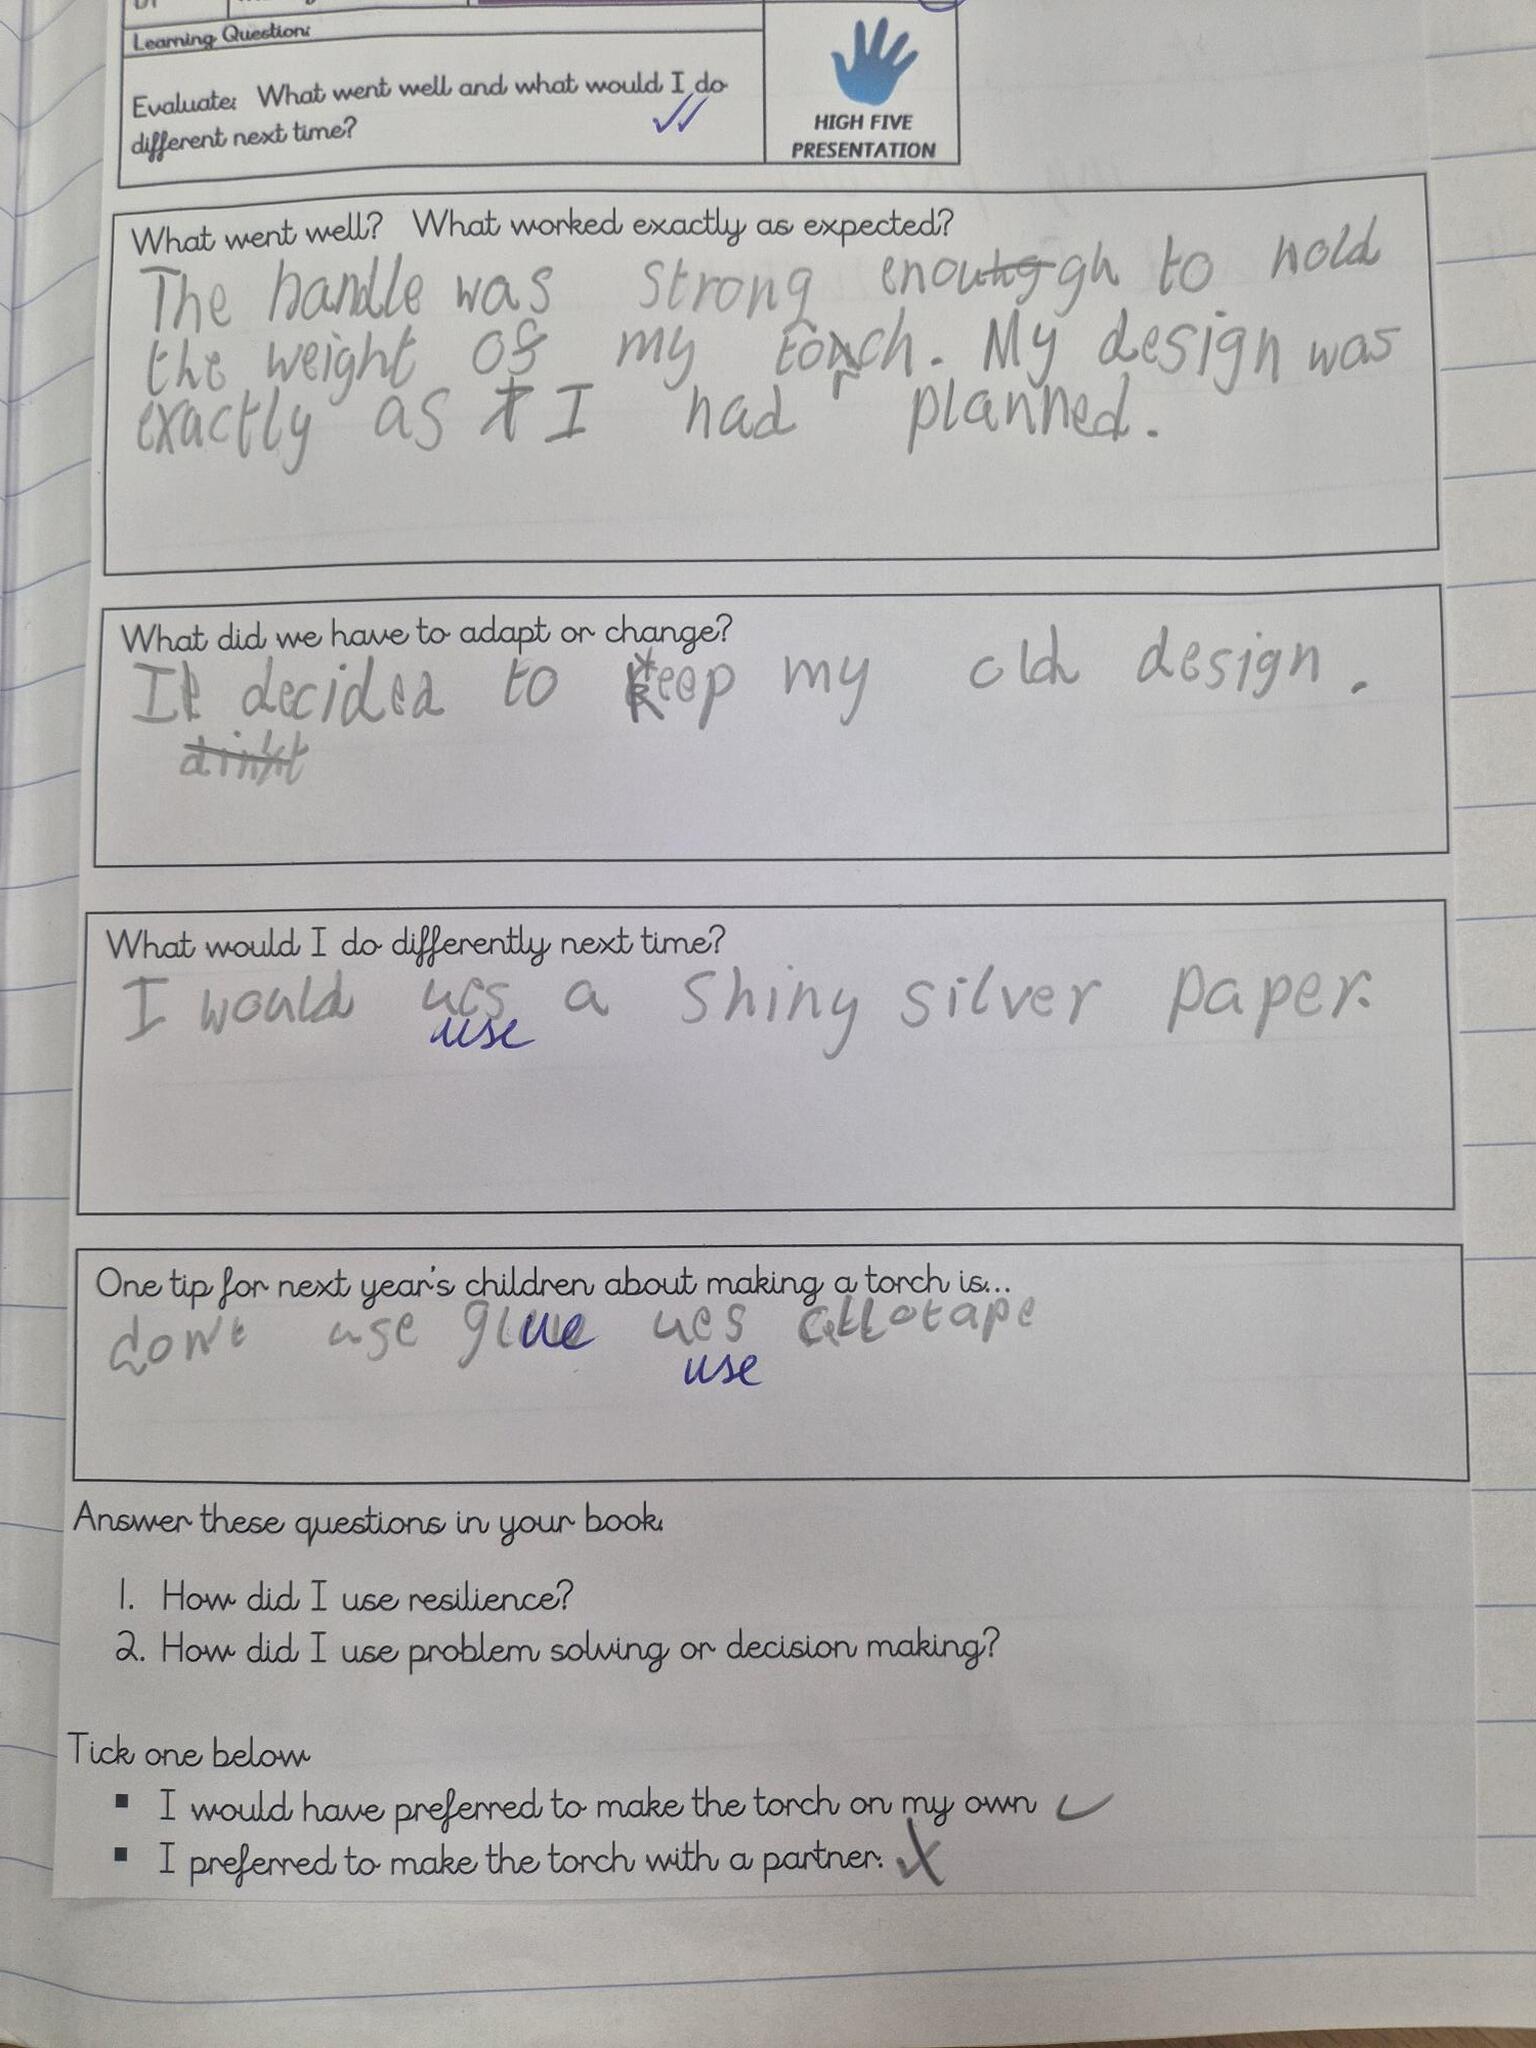 Learning Question:
Evaluate: What went well and what would I do
different next time?
HIGH FIVE
PRESENTATION
What went well? What worked exactly as expected?
The handle was strong enough to hold
the weight of my torch. My design was
exactly as I had planned.
What did we have to adapt or change?
I decided to keep my old design.
What would I do differently next time?
I would ues a shiny silver paper.
use
One tip for next year's children about making a torch is...
don't use glue ues
use
Answer these questions in your book.
1. How did I use resilience?
2. How did I use problem solving or decision making?
Tick one below
▪ I would have preferred to make the torch on my own
▪ I preferred to make the torch with a partner.